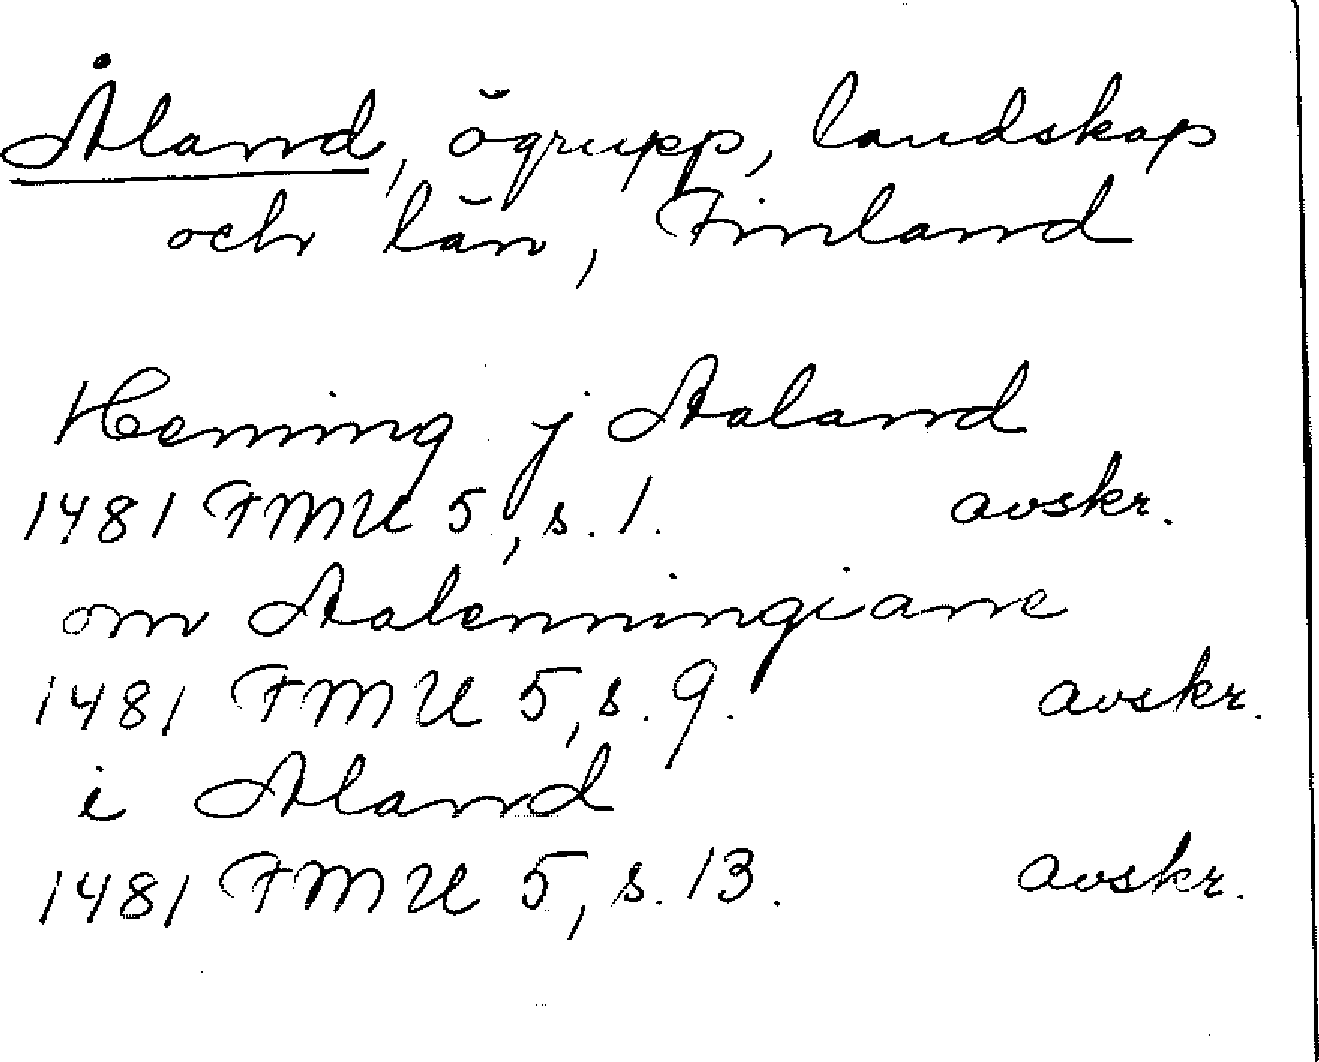 Åland, ögrupp, landskap
och län, Finland
Hemming j Aaland
1481 FMU 5, s. 1. avskr.
om Aalenningiane
1481 FMU 5, s. 9. avskr.
i Aland
1481 FMU 5, s. 13. avskr.